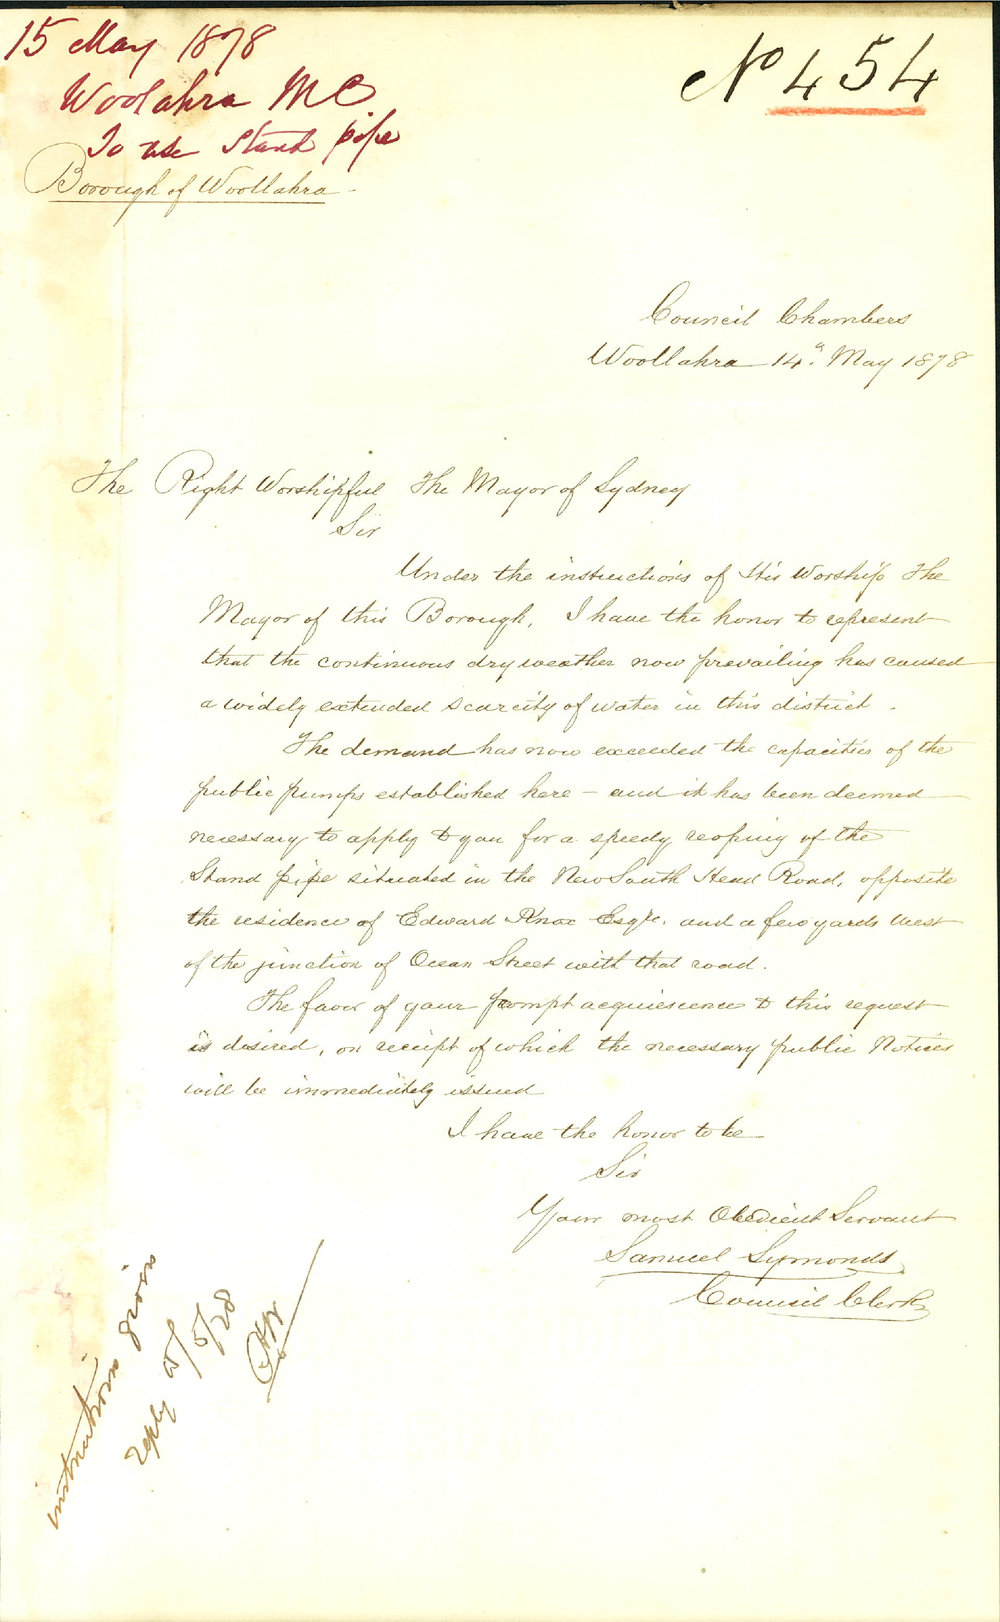 15 May 1878
Woolahra MC
To use Stand pipe
No 454
Borough of Woollahra
Council Chambers
Woollahra 14th May 1878
The Right Worshipful The Mayor of Sydney
Sir
Under the instructions of His Worship The
Mayor of this Borough, I have the honor to represent
that the continuous dry weather now prevailing has caused
a widely extended scarcity of water in this district.
The demand has now exceeded the capacities of the
public pumps established here – and it has been deemed
necessary to apply to you for a speedy reoping of the
Stand pipe situated in the New South Head Road, opposite
the residence of Edward Knox Esqre. and a few yards West
of the junction of Ocean Street with that road.
The favor of your prompt acquiescence to this request
is desired, on receipt of which the necessary public Notices
will be immediately issued
I have the honor to be
Sir
Your most Obedient Servant
Samuel Symonds
Council Clerk
instructions given
reply 15/5/78